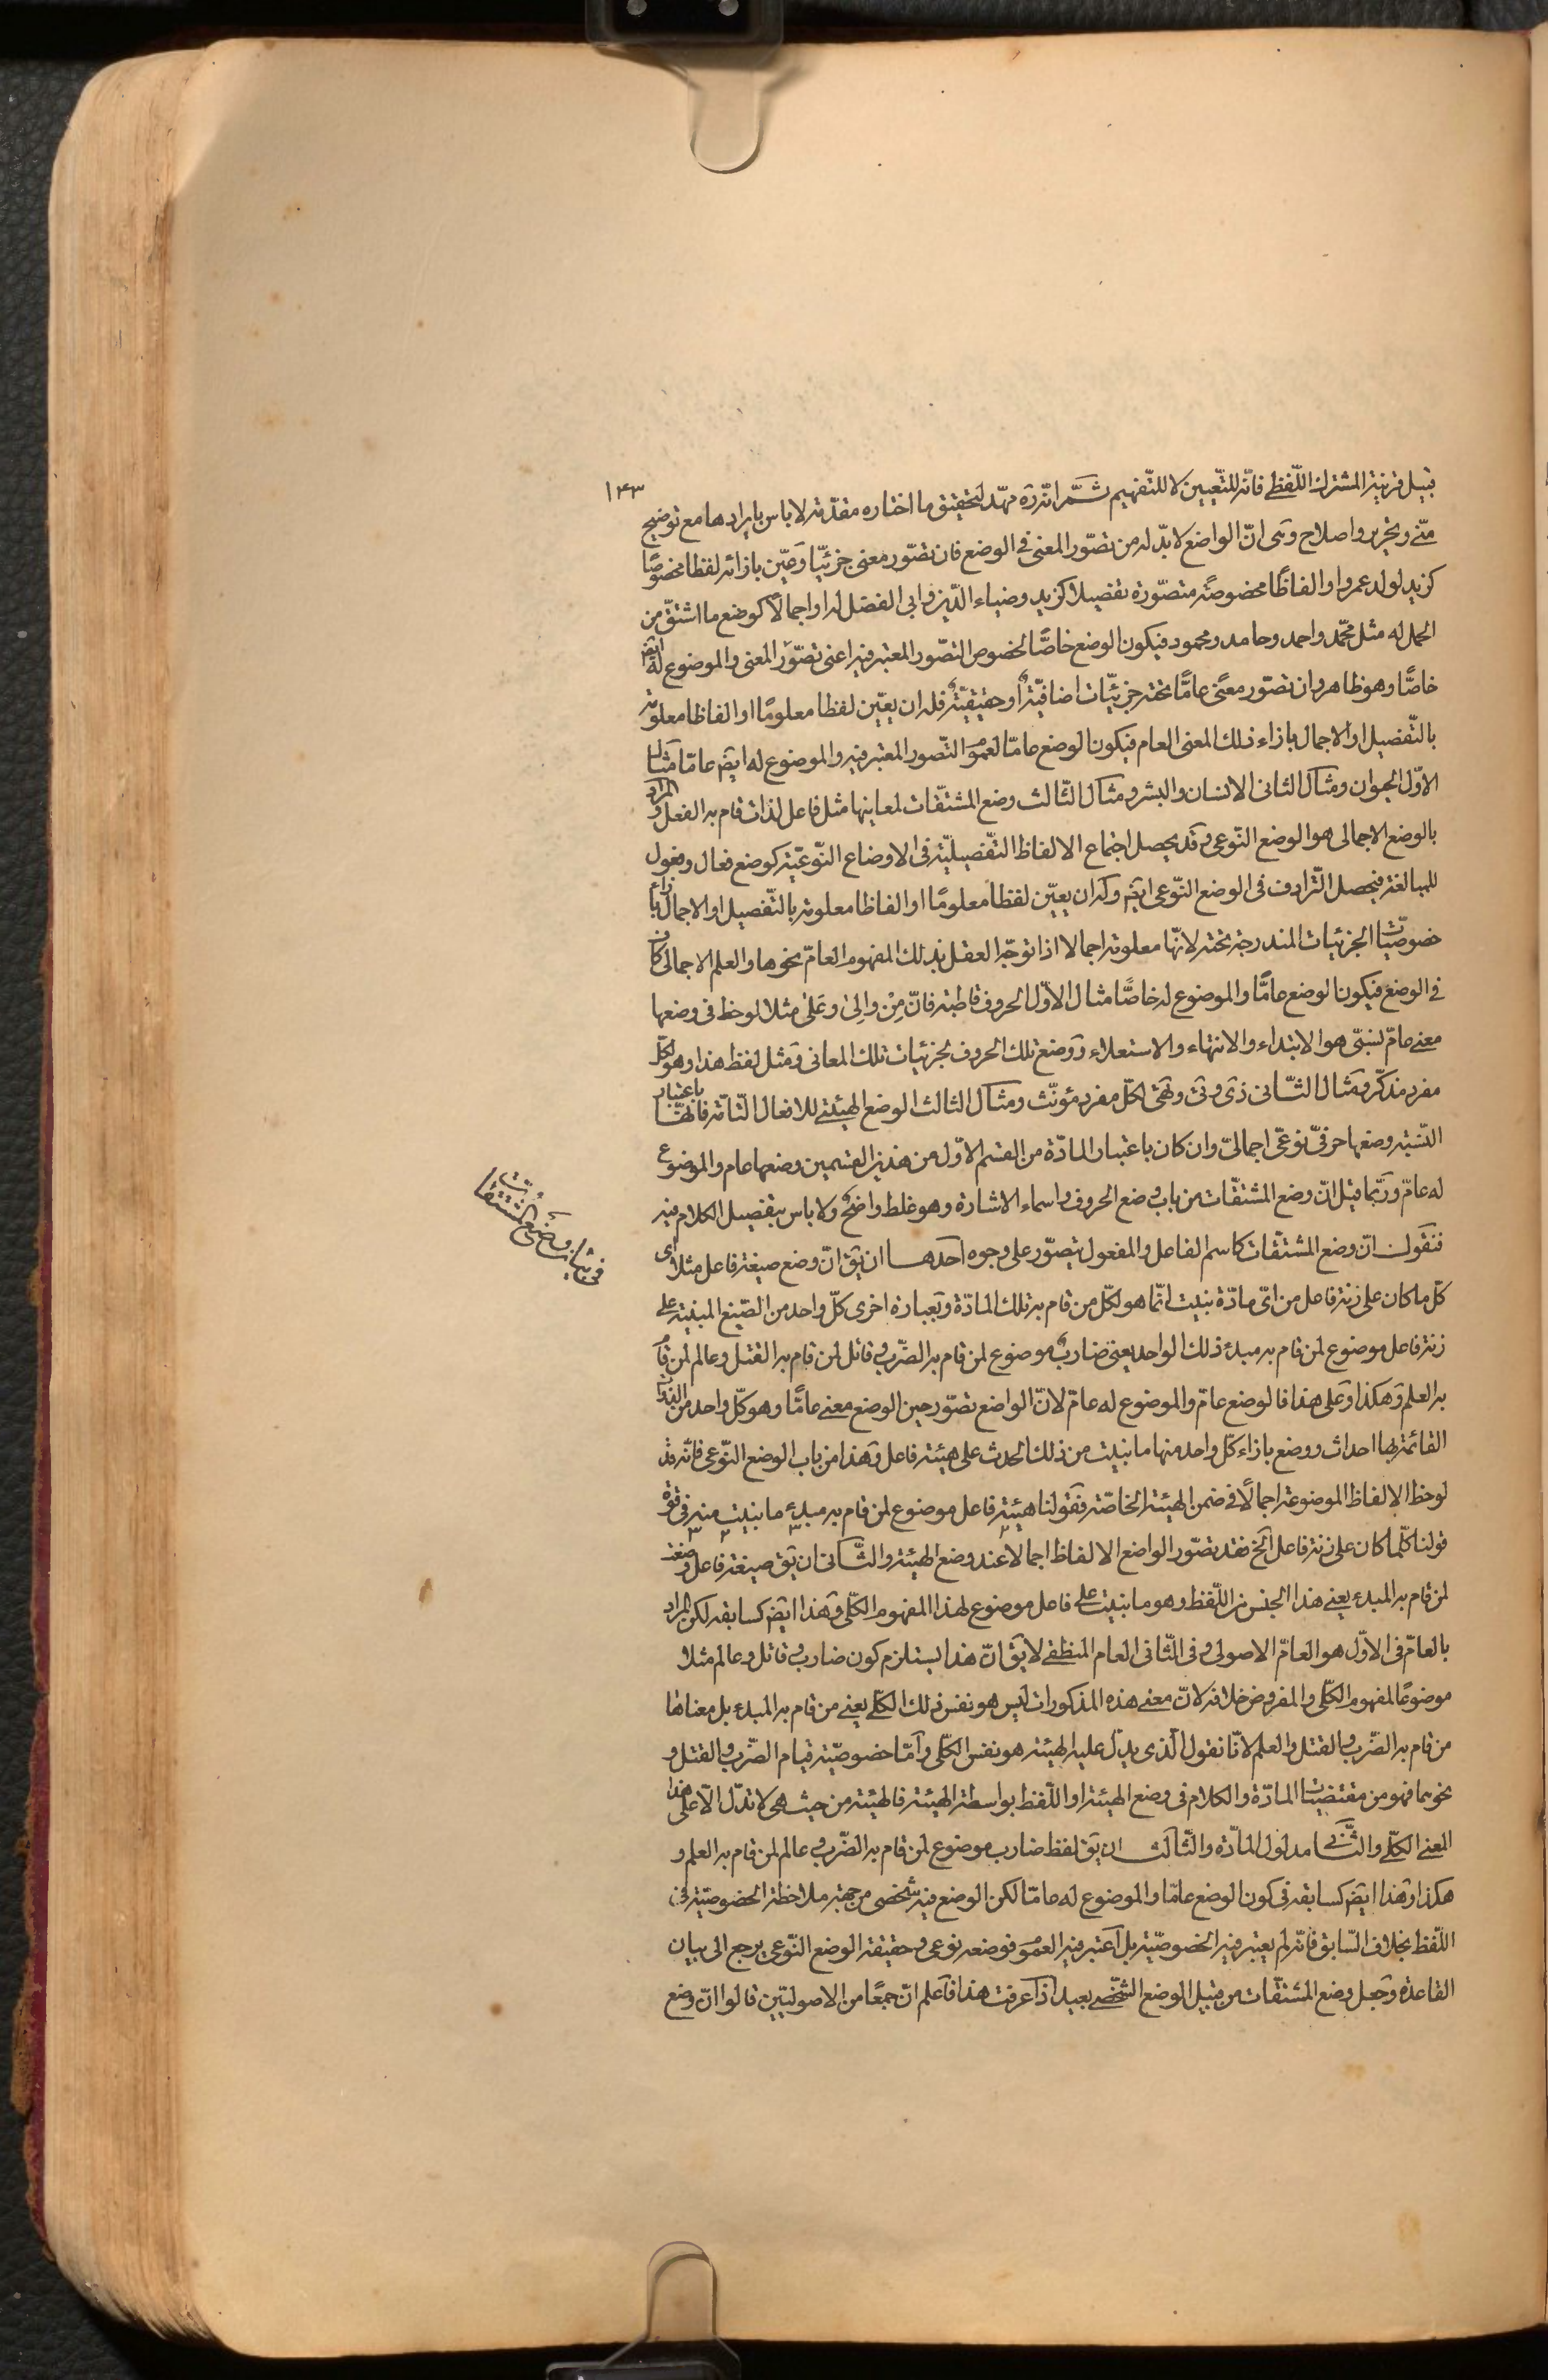 ۱۴۳
قبيل قرينة المشترك اللّفظے فانّه للتّعيين لا للتّفهيم ثمّ انّه ره مهّد لتحقيق ما اختاره مقدّمة لا باس بايرادها مع توضيح
منّے وتحرير واصلاح وهى انّ الواضع لا بدّ له من تصوّر المعنى فى الوضع فان تصوّر معنى جزئيّا وعيّن بازائه لفظا مخصوصًا
كزيد لولد عمرو او الفاظًا مخصوصةً متصوّرة تفصيلا كزيد وضياء الدّين وابى الفضل له او اجمالًا كوضع ما اشتقّ من
الحمد له مثل محمّد واحمد وحامد ومحمود فيكون الوضع خاصًّا لخصوص التصّور المعتبر فيه اعنى تصّور المعنى والموضوع له ايضً
خاصًّا وهو ظاهر وان تصوّر معنًى عامًّا تحته جزئيّات اضافيّةٌ او حقيقيّةٌ فله ان يعيّن لفظا معلومًا او الفاظا معلومة
بالتّفصيل او الاجمال بازاء ذلك المعنى العام فيكون الوضع عامّا لعموم التّصور المعتبر فيه والموضوع له ايضً عامّا مثال
الاوّل الحيوان ومثال الثانى الانسان والبشر ومثال الثّالث وضع المشتقّات لمعانيها مثل فاعل لذات قام به الفعل والمراد
بالوضع الاجمالى هو الوضع النّوعى وقد يحصل اجتماع الالفاظ التّفصيليّة فى الاوضاع النّوعيّة كوضع فعال وفعول
للمبالغة فيحصل التّرادف فى الوضع النّوعى ايضً وله ان يعيّن لفظًا معلومًا او الفاظا معلومة بالتّفصيل او الاجمال بازاء
خصوصيّات الجزئيات المندرجة تحته لانّها معلومة اجمالا اذا توجّه العقل بذلك المفهوم العامّ نحوها والعلم الاجمالى كاف
فى الوضع فيكون الوضع عامًّا والموضوع له خاصًّا مثال الاوّل الحروف قاطبة فانّ مِنْ والِىٰ وعَلىٰ مثلا لوحظ فى وضعها
معنے عامّ نسبّى هو الابتداء والانتهاء والاستعلاء ووضع تلك الحروف لجزئيات تلك المعانى ومثل لفظ هذا وهو لكلّ
مفرد مذكّر ومثال الثّانى ذى وتى وتهى لكلّ مفرد مؤنّث ومثال الثالث الوضع الهيئتے للافعال التّامّة فانّها باعتبار
النّسبة وضعها حرفىّ نوعىّ اجمالىّ وان كان باعتبار المادّة من القسم الاوّل من هذين القسمين وضعها عام والموضوع
له عامّ وربّما قيل انّ وضع المشتقّات من باب وضع الحروف واسماء الاشارة وهو غلط واضحٌ ولا باس بتفصيل الكلام فيه
فى بيان وضع المشتقات
فنقول انّ وضع المشتقّات كاسم الفاعل والمفعول يتصوّر على وجوه احدها ان يق انّ وضع صيغة فاعل مثلا اى
كلّ ما كان على زنة فاعل من اىّ مادّة بنيت انّما هو لكلّ من قام به تلك المادّة وبعبارة اخرى كلّ واحد من الصّيغ المبنيّة على
زنة فاعل موضوع لمن قام به مبدء ذلك الواحد يعنى ضاربٌ موضوع لمن قام به الضّرب وقاتل لمن قام به القتل وعالم لمن قام
به العلم وهكذا وعلى هذا فالوضع عامّ والموضوع له عامّ لانّ الواضع تصوّر حين الوضع معنے عامًّا وهو كلّ واحد من الذّات
القائمة بها احداث ووضع بازاء كلّ واحد منها ما بنيت من ذلك الحدث على هيئة فاعل وهذا من باب الوضع النّوعى فانّه قد
لوحظ الالفاظ الموضوعة اجمالًا فى ضمن الهيئة الخاصّة فقولنا هيئة فاعل موضوع لمن قام به مبدء ما بنيت منه فى قوّة
قولنا كلّما كان على زنة فاعل الخ فقد تصّور الواضع الالفاظ اجمالا عند وضع الهيئة والثّانى ان يق صيغة فاعل وضعت
لمن قام به المبدء يعنے هذا الجنس من اللّفظ وهو ما بنيت على فاعل موضوع لهذا المفهوم الكلّى وهذا ايضً كسابقه لكن المراد
بالعامّ فى الاوّل هو العامّ الاصولى وفى الثّانى العام المنطقے لا يق انّ هذا يستلزم كون ضارب وقاتل وعالم مثلا
موضوعًا لمفهوم الكلّى والمفروض خلافه لانّ معنے هذه المذكورات ليس هو نفس ذلك الكلّے يعنے من قام به المبدء بل معناها
من قام به الضّرب والقتل والعلم لانّا نقول الّذى يدلّ عليه الهيئة هو نفس الكلّى وامّا خصوصيّة قيام الضّرب والقتل و
نحوهما فهو من مقتضيات المادّة والكلام فى وضع الهيئة او اللّفظ بواسطة الهيئة فالهيئة من حيث هى لا تدلّ الّا على هذا
المعنے الكلّے والثّانى مدلول المادّة والثّالث ان يق لفظ ضارب موضوع لمن قام به الضّرب وعالم لمن قام به العلم و
هكذا وهذا ايضً كسابقه فى كون الوضع عامّا والموضوع له عامّا لكن الوضع فيه شخصى من جهة ملاحظة الخصوصيّة فى
اللّفظ بخلاف السّابق فانّه لم يعتبر فيه الخصوصيّة بل اعتبر فيه العموم فوضعه نوعى وحقيقة الوضع النّوعى يرجع الى بيان
القاعدة وجعل وضع المشتقّات من قبيل الوضع الشّخصے بعيد اذا عرفت هذا فاعلم انّ جمعًا من الاصوليّين قالوا انّ وضع